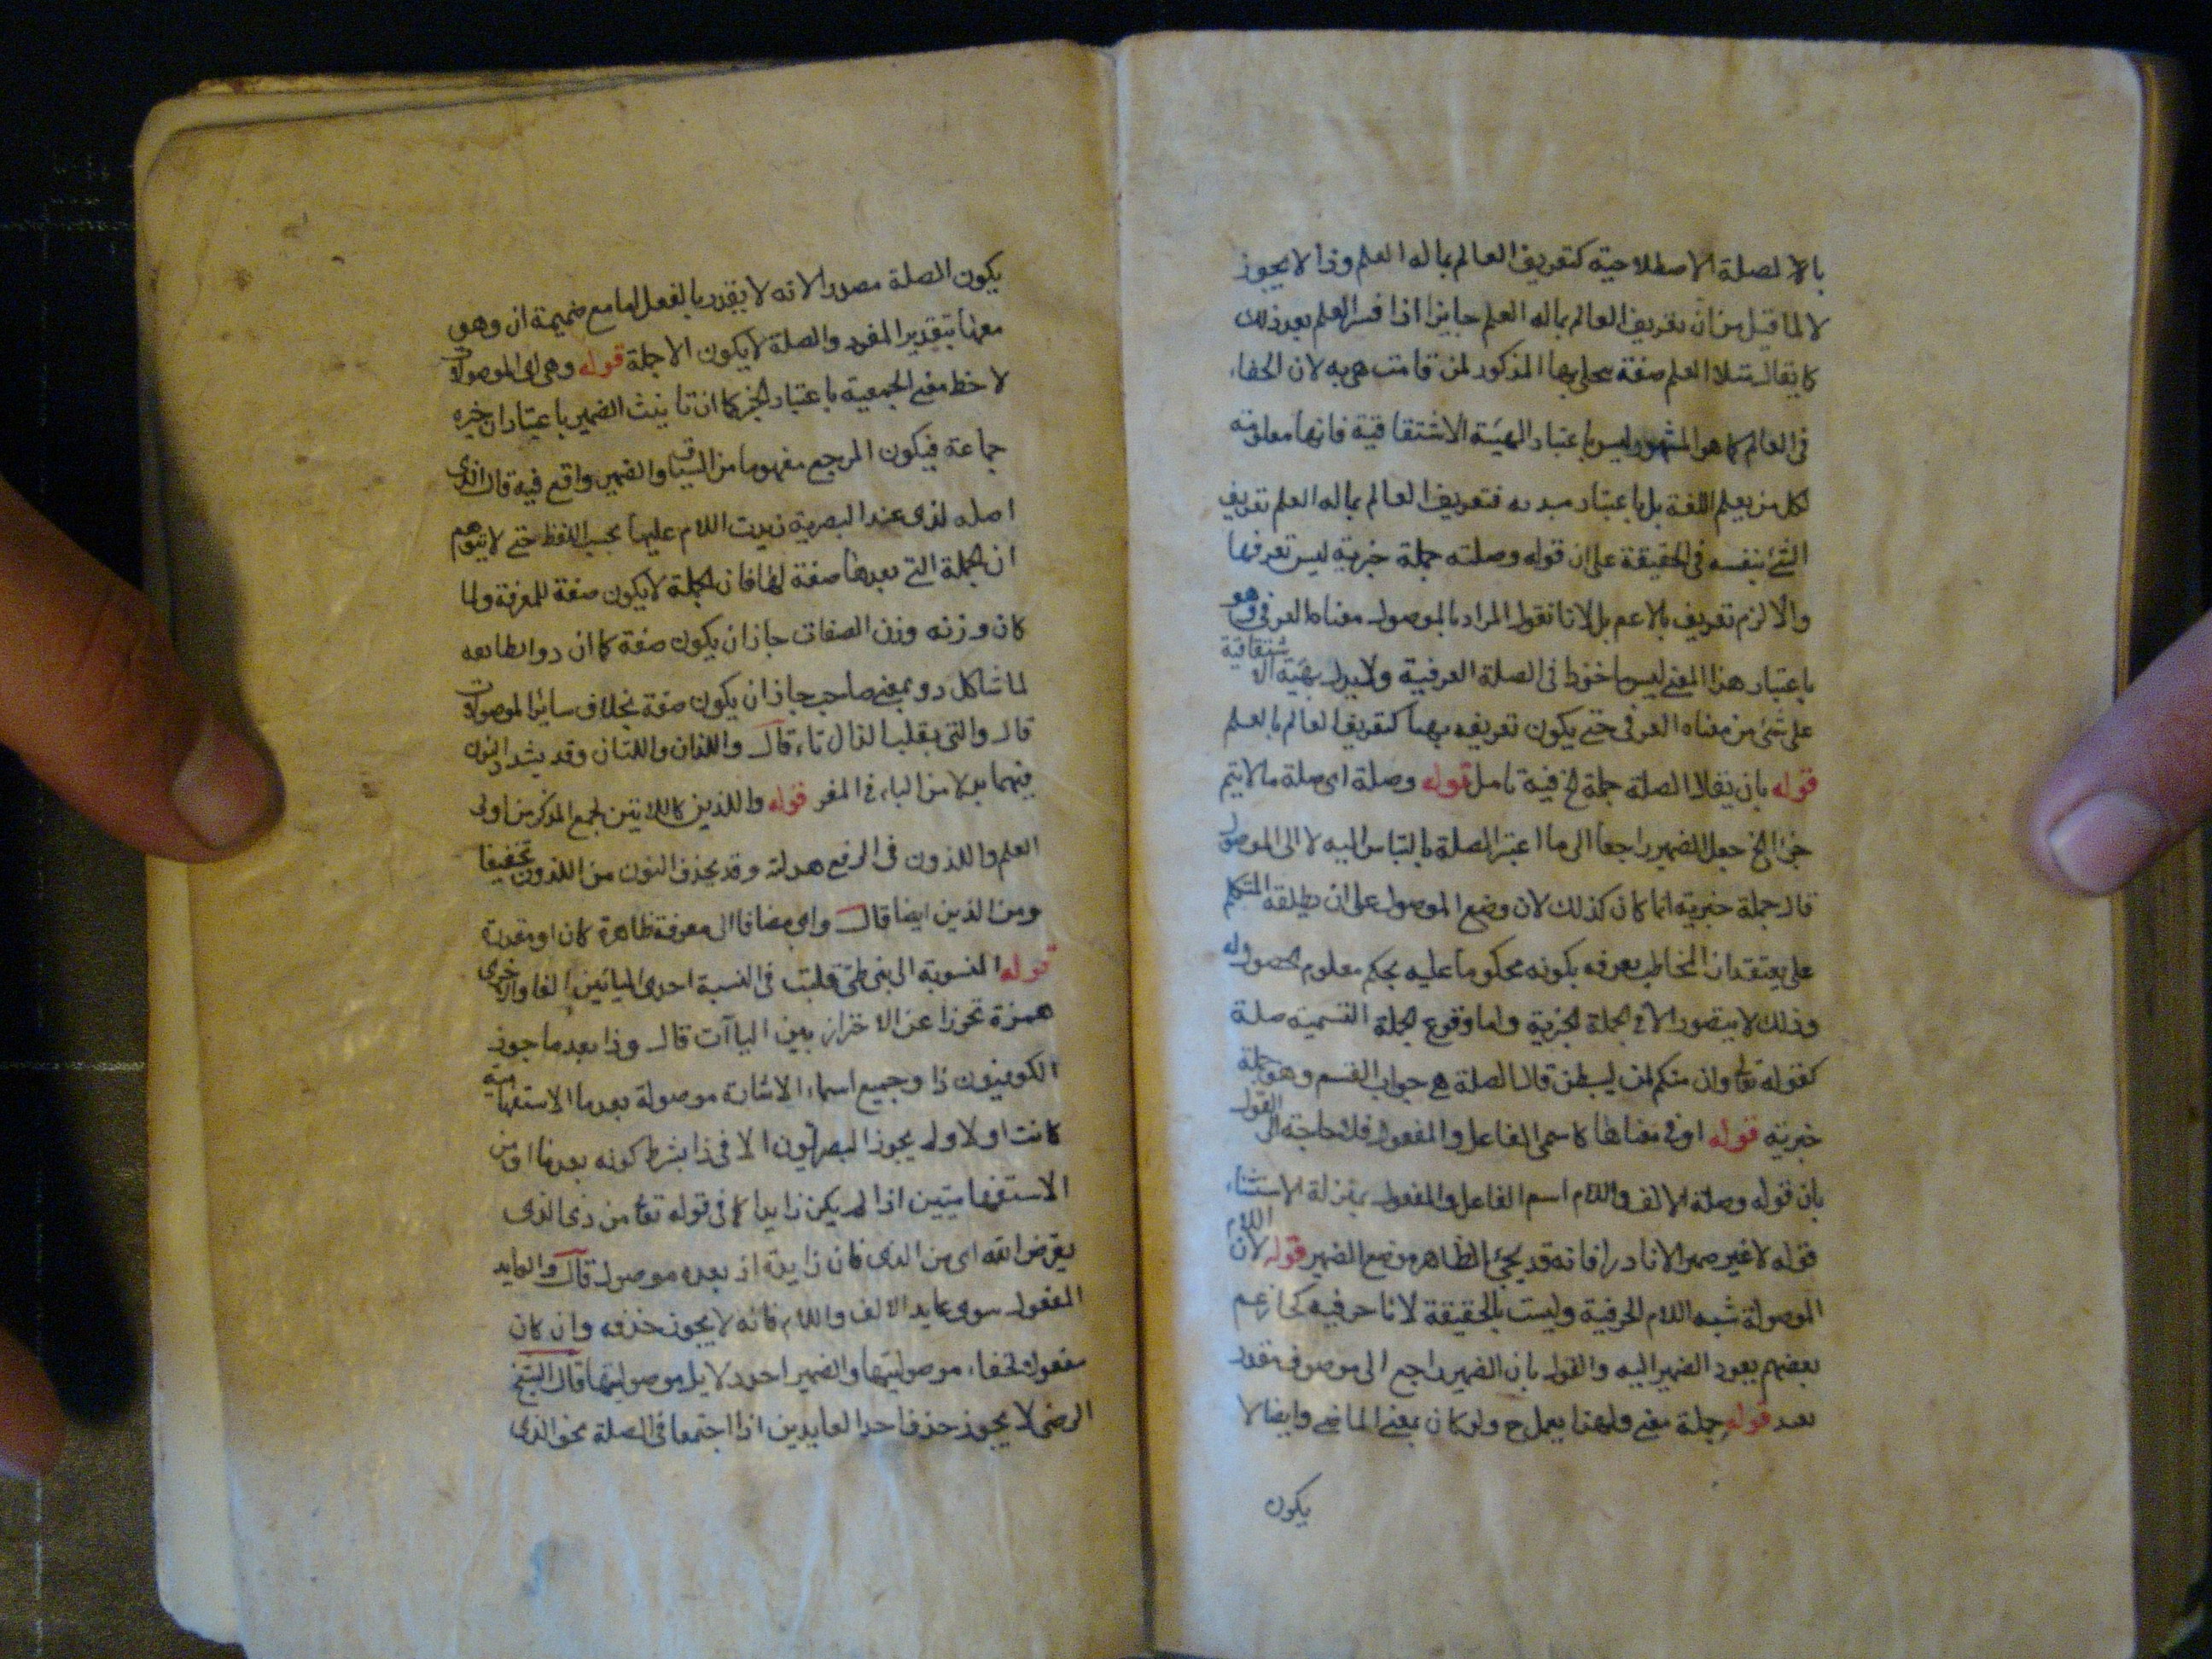 بالا لصلة الاصطلاحية كتعريف العالم بما له العلم وذا لا يجوز
لا لما قيل من ان تعريف العالم بما له العلم جايز اذا فسر العلم بعد ذلك
كما يقال مثلا العلم صفة يتجلى بها المذكور لمن قامت هى به لان الخفاء
فى العالم كما هو المشهور ليس باعتبار الهيئة الاشتقاقية فانها معلومة
لكل من يعلم اللغة بل باعتبار مبدئه فتعريف العالم بما له العلم تعريف
الشئ بنفسه فى الحقيقة على ان قوله وصلته جملة خبرية ليس تعرفها
والا لزم تعريف بالاعم بل لانا نقول المراد بالموصول معناه العرفى وهو
باعتبار هذا المعنى ليس ماخوذا فى الصلة العرفية ولا يدل بهيئته الاشتقاقية
على شئ من معناه العرفى حتى يكون تعريفه بها كتعريف العالم بالعلم
قوله بان يقال الصلة جملة الخ فيه تامل قوله وصلة اى صلة ما لا يتم
جزا الخ جعل الضمير راجعا الى ما اعتبر الصلة بالقياس اليه لا الى الموصول
قال جملة خبرية انما كان كذلك لان وضع الموصول على ان يطلقه المتكلم
على يعتقد ان المخاطب يعرفه بكونه محكوما عليه بحكم معلوم الحصول له
وذلك لا يتصور الا فى الجملة الخبرية واما وقوع الجملة القسمية صلة
كقوله تعا وان منكم لمن ليبطئن قالصلة هى جواب القسم وهو جملة
خبرية قوله او فى معناها كاسمى الفاعل والمفعول فلا حاجة الى القول
بان قوله وصلة الالف واللام اسم الفاعل والمفعول بمنزلة الاستثناء
قوله لا غير ضمير الا نادرا فانه قد يجئ الظاهر موضع الضمير قوله لان اللام
الموصولة شبه اللام الحرفية وليست بالحقيقة لاما حرفية كما زعم
بعضهم بعود الضمير اليه والقول بان الضمير راجع الى موصوف مقدر
بعيد قوله جملة معنى ولهذا يعمل ح ولو كان بمعنى الماضى وايضا لا
يكون
يكون الصلة مصدرا لانه لا يقدر بالفعل الا مع ضميمة ان وهو
معها بتقدير المفرد والصلة لا يكون الا جملة قوله وهى اى الموصولات
لاحظ معنى الجمعية باعتبار الخبر كما ان تانيث الضمير باعتبار ان خبره
جماعة فيكون المرجع مفهوما من السياق والضمير واقع فيه قال الذى
اصله لذى عند البصرية زيدت اللام عليها بحسب اللفظ حتى لا يتوهم
ان الجملة التى بعدها صفة لها فان الجملة لا يكون صفة للمعرفة ولما
كان وزنه وزن الصفات جاز ان يكون صفة كما ان ذو الطائيه
لما شاكل ذو بمعنى صاحب جاز ان يكون صفة بخلاف سائر الموصولات
قال والتى بقلب الذال تاء قال واللذان واللتان وقد يشدد النون
فيهما بدلا من الياء فى المفرد قوله واللذين كاللاتين لجمع المذكر من اولى
العلم واللذون فى الرفع هذلية وقد يحذف النون من اللذون تخفيفا
ومن الذين ايضا قال واى مضافا الى معرفة ظاهرة كان او مقدرة
قوله المنسوبة الى بنى طئ قلبت فى النسبة احدى اليائين الفا والاخرى
همزة تحرزا عن الاحتراز بين الياآت قال وذا بعد ما جوز
الكوفيون ذا وجميع اسماء الاشارة موصولة بعد ما الاستفهامية
كانت او لا ولم يجوز البصريون الا فى ذا بشرط كونه بعد ما او من
الاستفهاميتين اذا لم يكن زايدا كما فى قوله تعا من ذى الذى
يقرض الله اى من الذى فان ذا زايدة اذ بعده موصول قال والعايد
المفعول سوى عايد الالف واللام فانه لا يجوز حذفه وان كان
مفعولا لخفاء موصوليتها والضمير احد دلايل موصوليتها قال الشيخ
الرضى لا يجوز حذف احد العايدين اذا اجتمعا فى الصلة نحو الذى